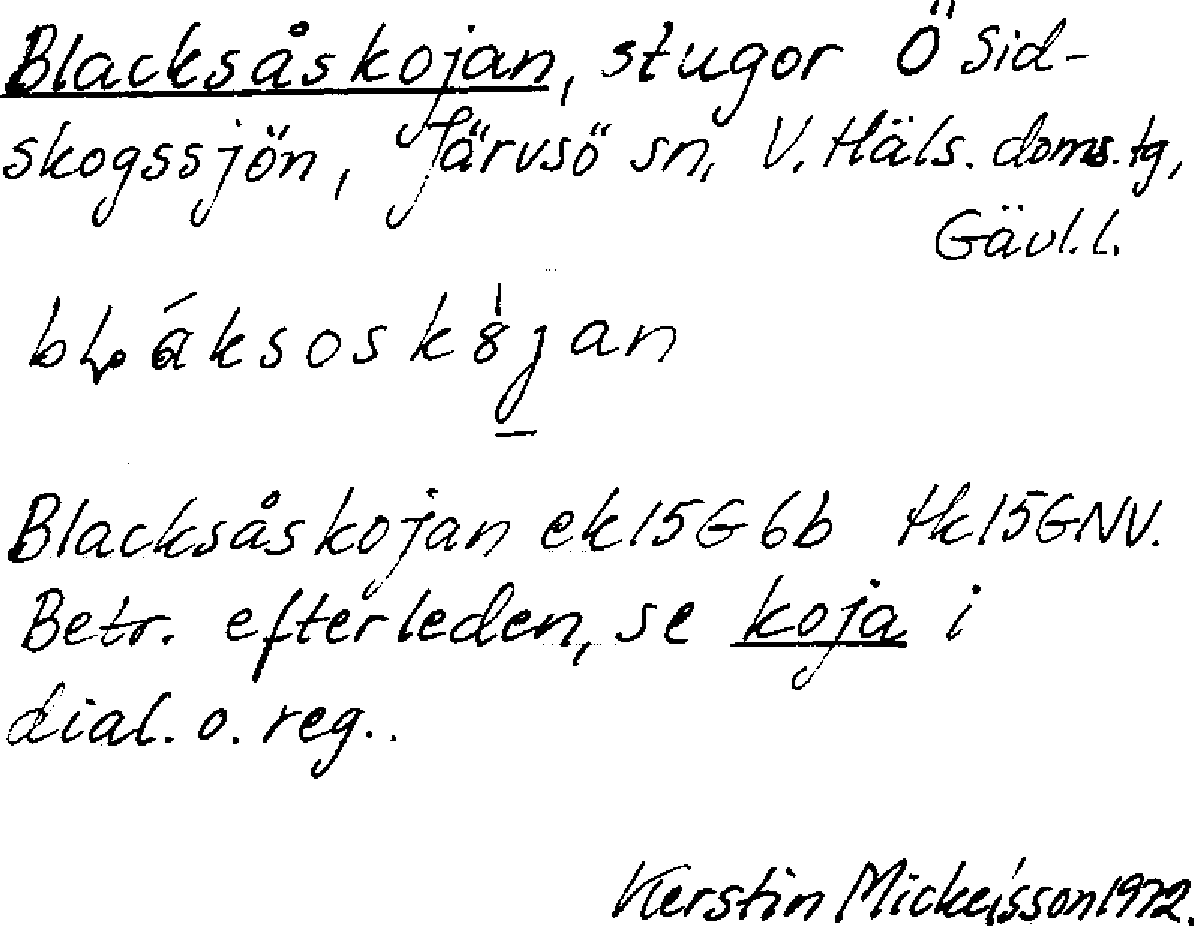 Blacksåskojan, stugor Ö Sid-
skogssjön, Järvsö sn, V. Häls. doms.tg,
Gävl.l.
Blacksåskojan ek15G6b tk15GNV.
Betr. efterleden, se koja i
dial. o. reg..
Kerstin Mickelsson 1972.